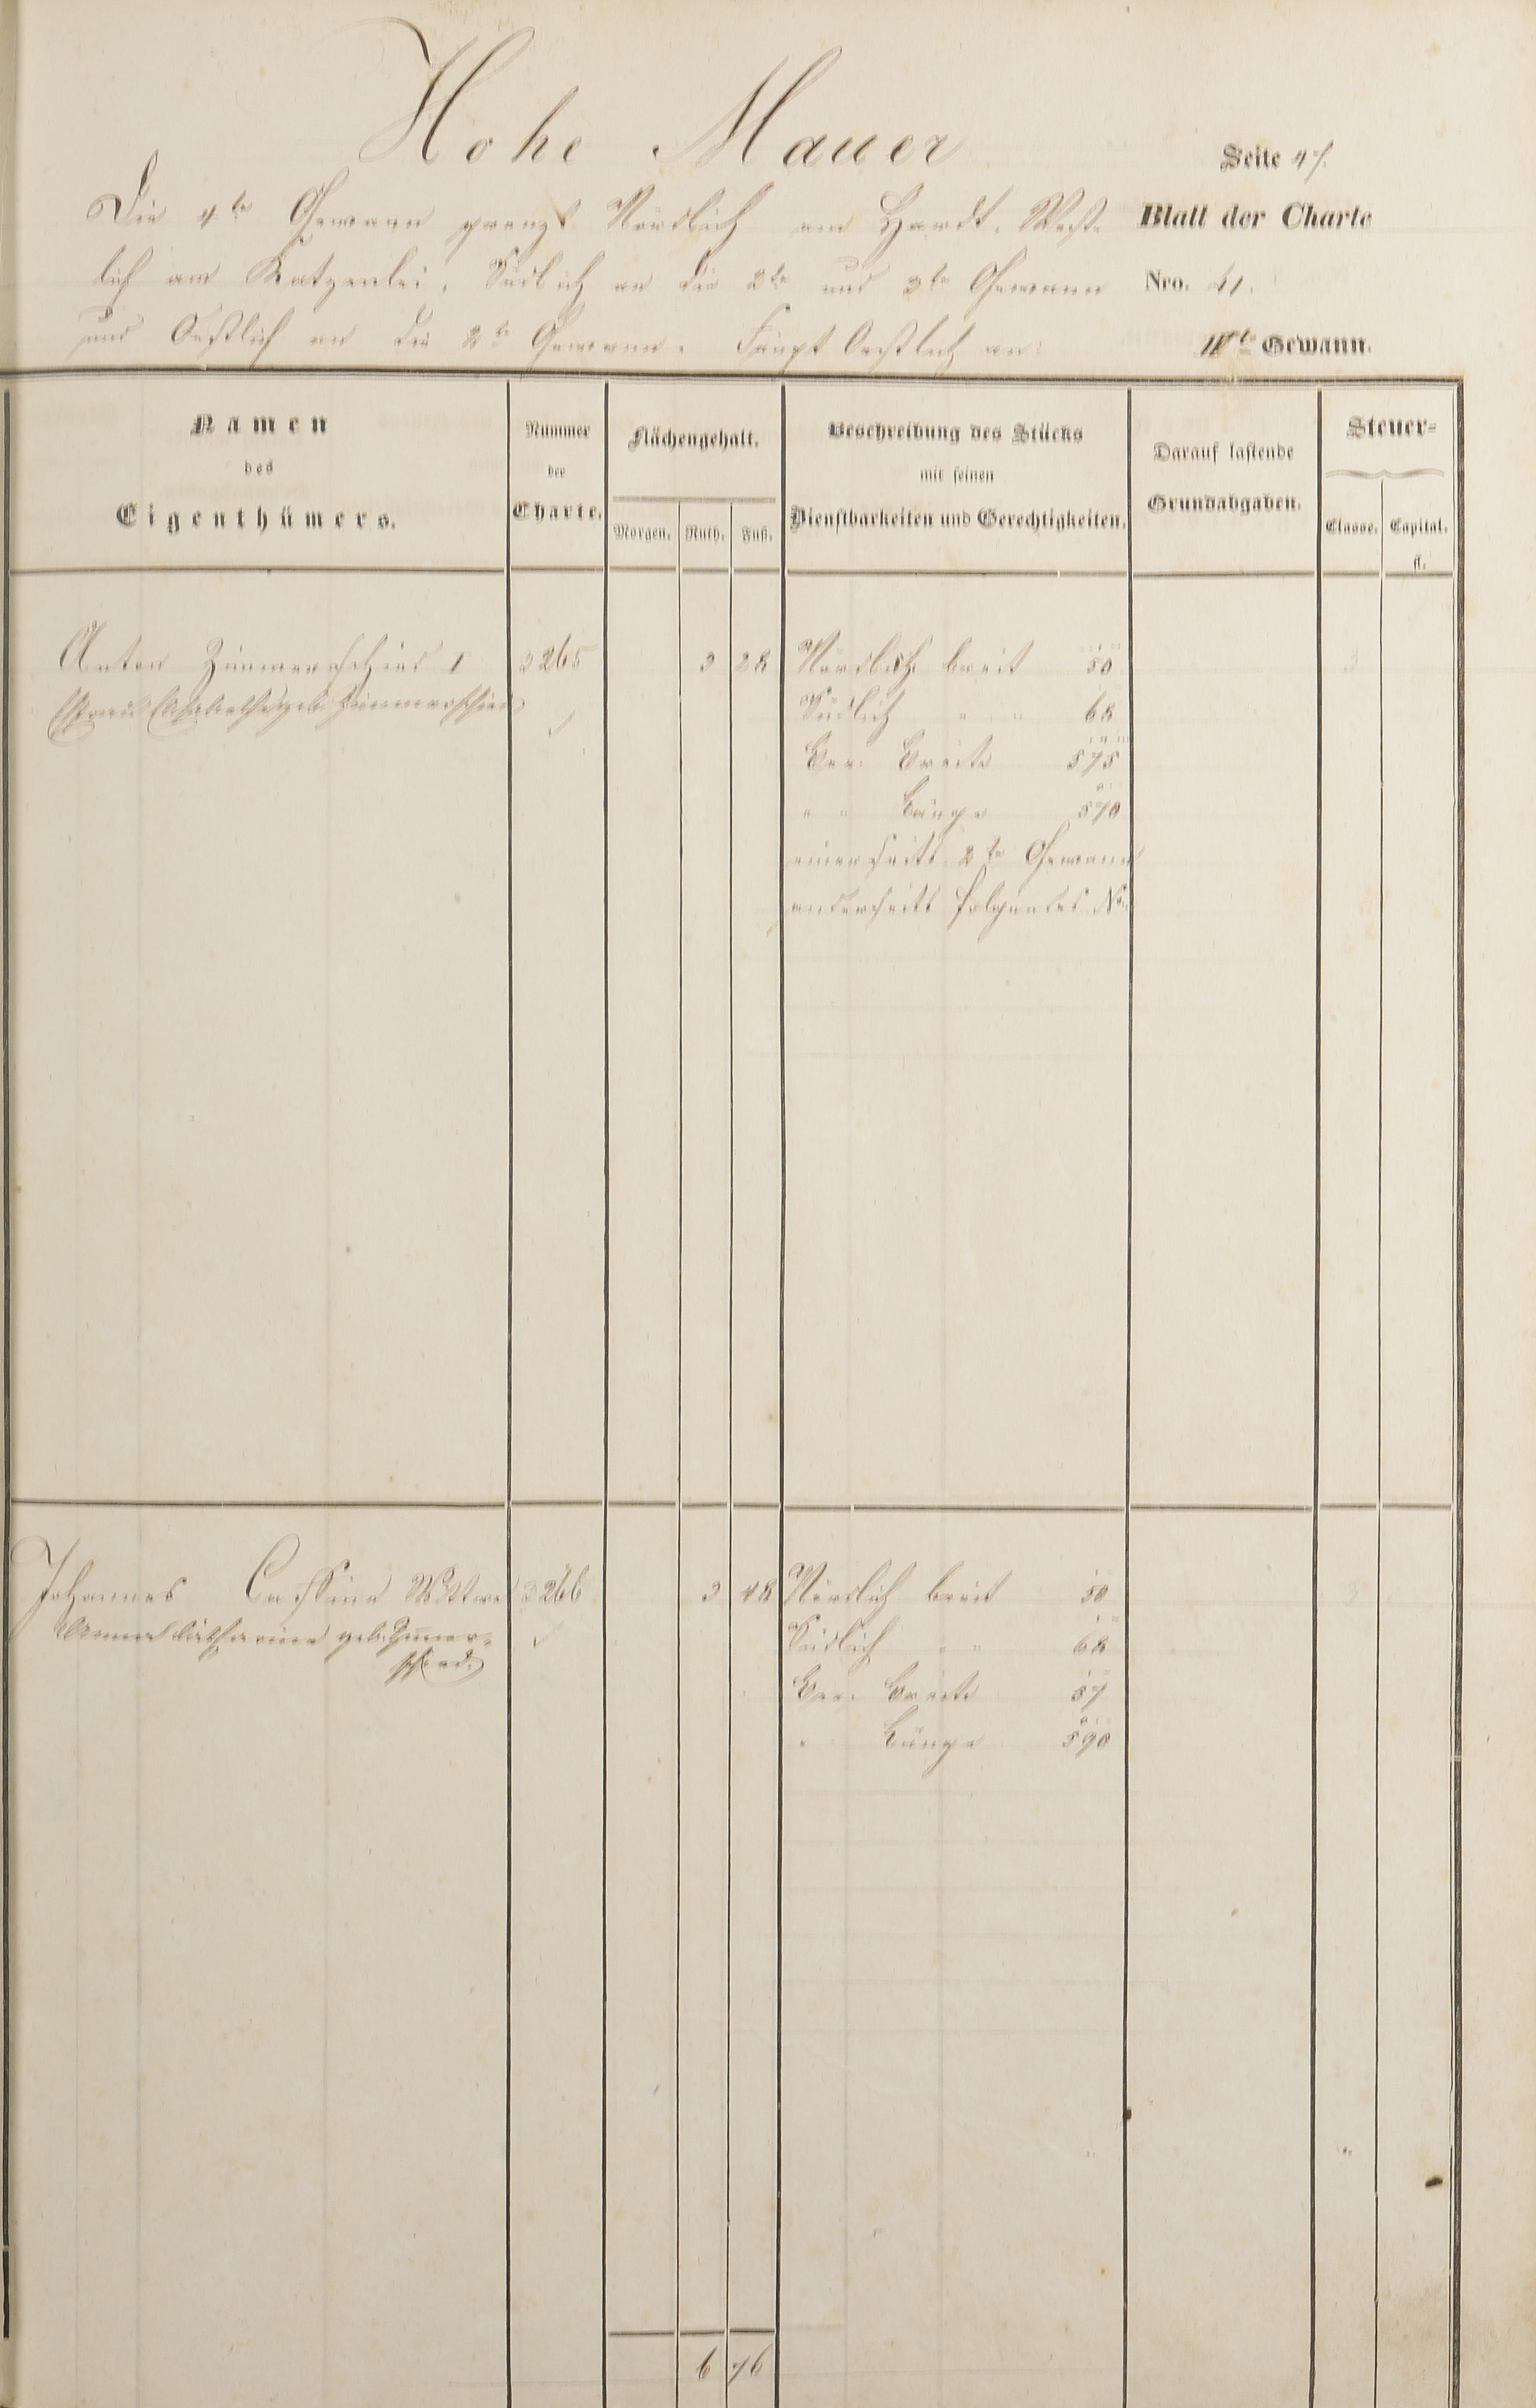 Hohe Mauer
Seite 47.
Die 4te Gewann grenzt Nördlich am Hardt, West-
Blatt der Charte
lich am Katzenlei, Südlich an die 2te und 3te Gewann
Nro. 41.
und Oestlich an die 2te Gewann. Fängt Oestlich an:
IVte Gewann.
Namen
des
Eigenthümers.
Nummer
der
Charte.
Flächengehalt.
Morgen. Ruth. Fuß.
Beschreibung des Stücks
mit seinen
Dienstbarkeiten und Gerechtigkeiten.
Darauf lastende
Grundabgaben.
Steuer-
Classe. Capital.
fl.
Anton Zimmerschied I 3265 3 28 Nördlich breit 50 3
Ehefrau Elisabetha geb. Zimmerschied
Südlich " " 68
Ver. Breite 575
" " Länge 570
einerseits 2te Gewann
anderseits folgendes No.
Johannes Wittwe 3266 3 48 Nördlich breit 50 3
Anna Catharina geb. Zimmer-
schied
Südlich " " 68
Ver. Breite 57
" Länge 590
6 76